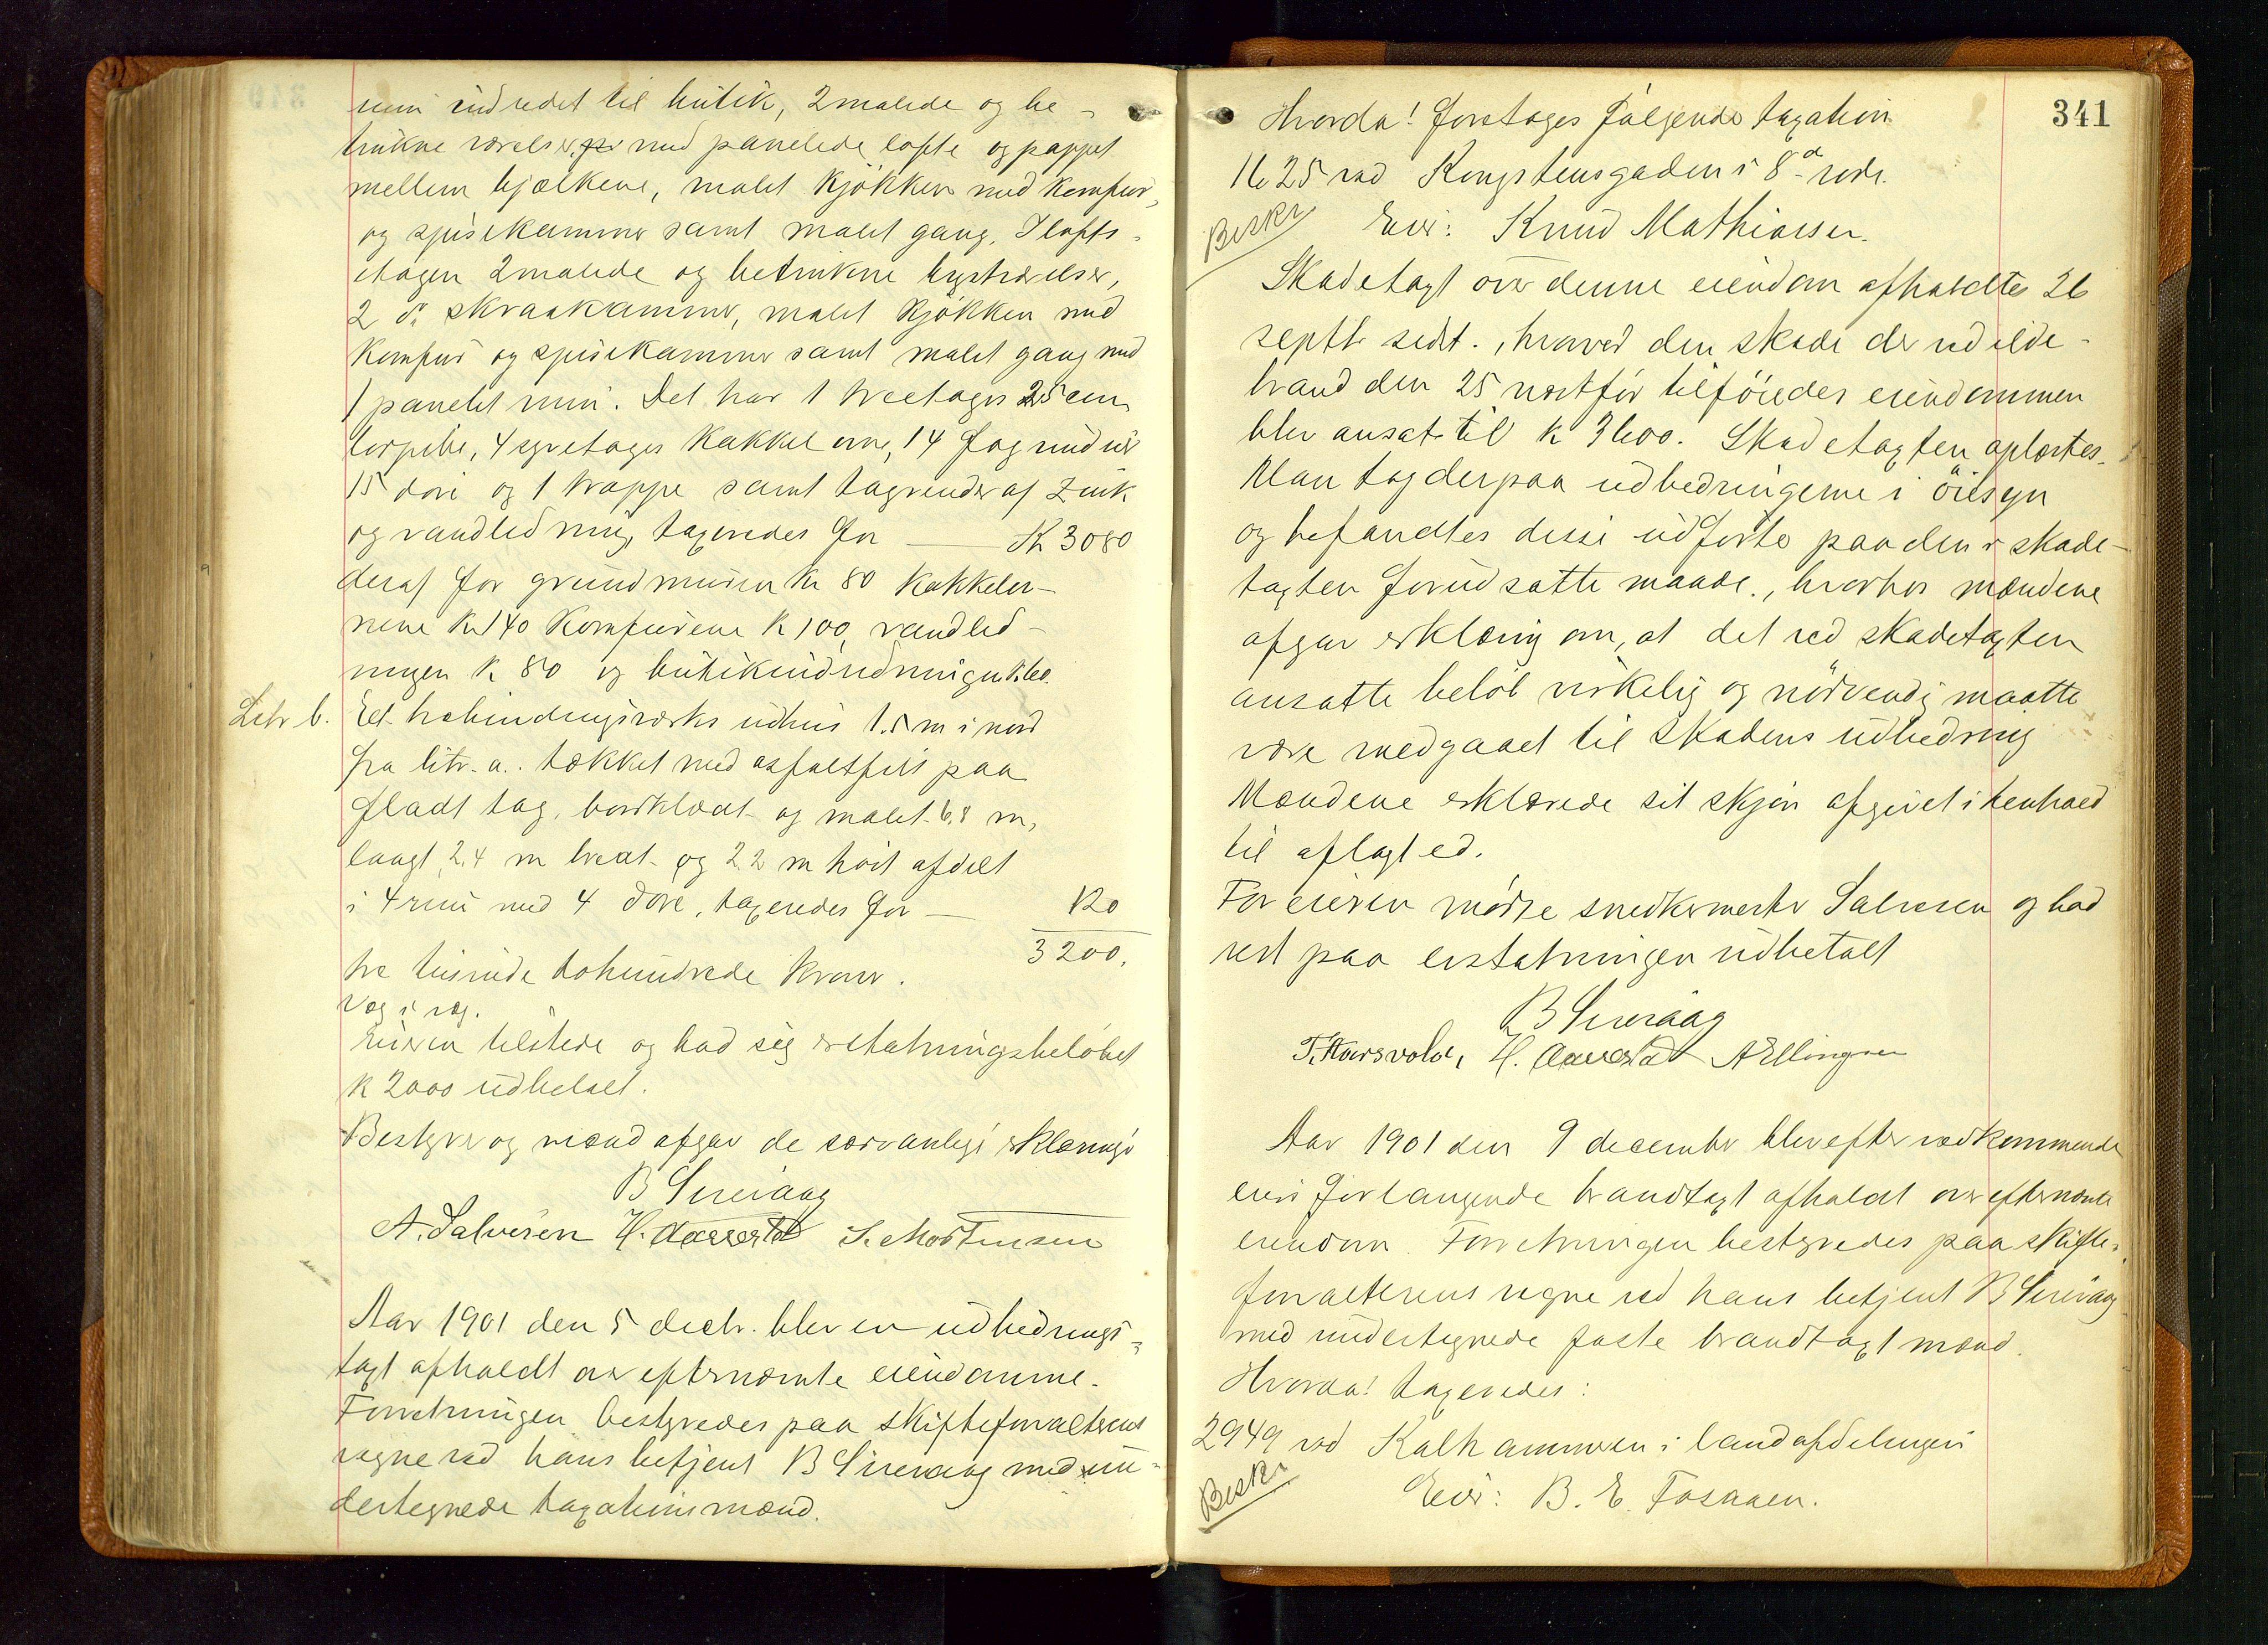 rum indredet til butik, 2 malede og be-
trukne værelser, med panelede lofte og pappet
mellem bjælkene, malet kjøkken med komfur,
og spisekammer samt malet gang. I lofts-
etagen 2 malede og betrukne kvistværelser,
2 do skraakammer, malet kjøkken med
komfur og spisekammer samt malet gang med
1 panelet rum. Det har 1 treetages 25 cm
torpibe, 4 kakkelovne, 14 fag vinduer
15 døre og 1 trappe samt tagrender af zink
og vandledning, taxeredes for — Kr 3080
deraf for grundmuren Kr 80 kakkelov-
nene Kr 140 Komfurene K 100, vandled-
ningen K 80 og butikindredningen K 60.
Litr b. Et bindingsværks udhus 1.5 m i nord
fra litr. a. tækket med asfaltfilt paa
fladt tag, bordklædt og malet. 6,8 m,
langt, 2,4 m bredt og 2.2 m høit afdelt
i 4 rum med 4 døre, taxeredes for — 120
3200.
tre tusinde tohundrede kroner.
Væg i væg.
Eieren tilstede og bad sig erstatningsbeløbet
K 2000 udbetalt.
Bestyrer og mænd afgav de sædvanlige erklæringer
B Sirevaag
A. Salvesen H. Aarrestad S. Mortensen
Aar 1901 den 5 decbr. blev en udbedrings-
taxt afholdt over efternævnte eiendomme.
Forretningen bestyredes paa skifteforvalterens
vegne ved hans betjent B Sirevaag med un-
dertegnede taxationsmænd.
341
Hvorda! foretoges følgende taxation
1625 ved Kongstensgaden i 8de rode.
Beskr Eier: Knud Mathiassen.
Skadetaxt over denne eiendom afholdtes 26
septbr sidst., hvorved den skade der ved ilde-
brand den 25 næstfør tilføiedes eiendommen
blev ansat til K 3600. Skadetaxten oplæstes.
Man tog derpaa udbedringerne i øiesyn
og befandtes disse udførte paa den i skade-
taxten forudsatte maade, hvorhos mændene
afgav erklæring om, at det ved skadetaxten
ansatte beløb virkelig og nødvendig maatte
være medgaaet til skadens udbedring
Mændene erklærede sit skjøn afgivet i henhold
til aflagt ed.
For eieren mødte snedkermester Salvesen og bad
rest paa erstatningen udbetalt
B Sirevaag
T. Korsvold, H. Aarrestad A Ellingsen
Aar 1901 den 9 december blev efter vedkommende
eiers forlangende brandtaxt afholdt over efternævnte
eiendom. Forretningen bestyredes paa skifte-
forvalterens vegne ved hans betjent B Sirevaag
med undertegnede faste brandtaxtmænd.
Hvorda! taxeredes:
2949 ved Kalhammeren i landafdelingen
Beskr. Eier: B. E. Fosaaen.